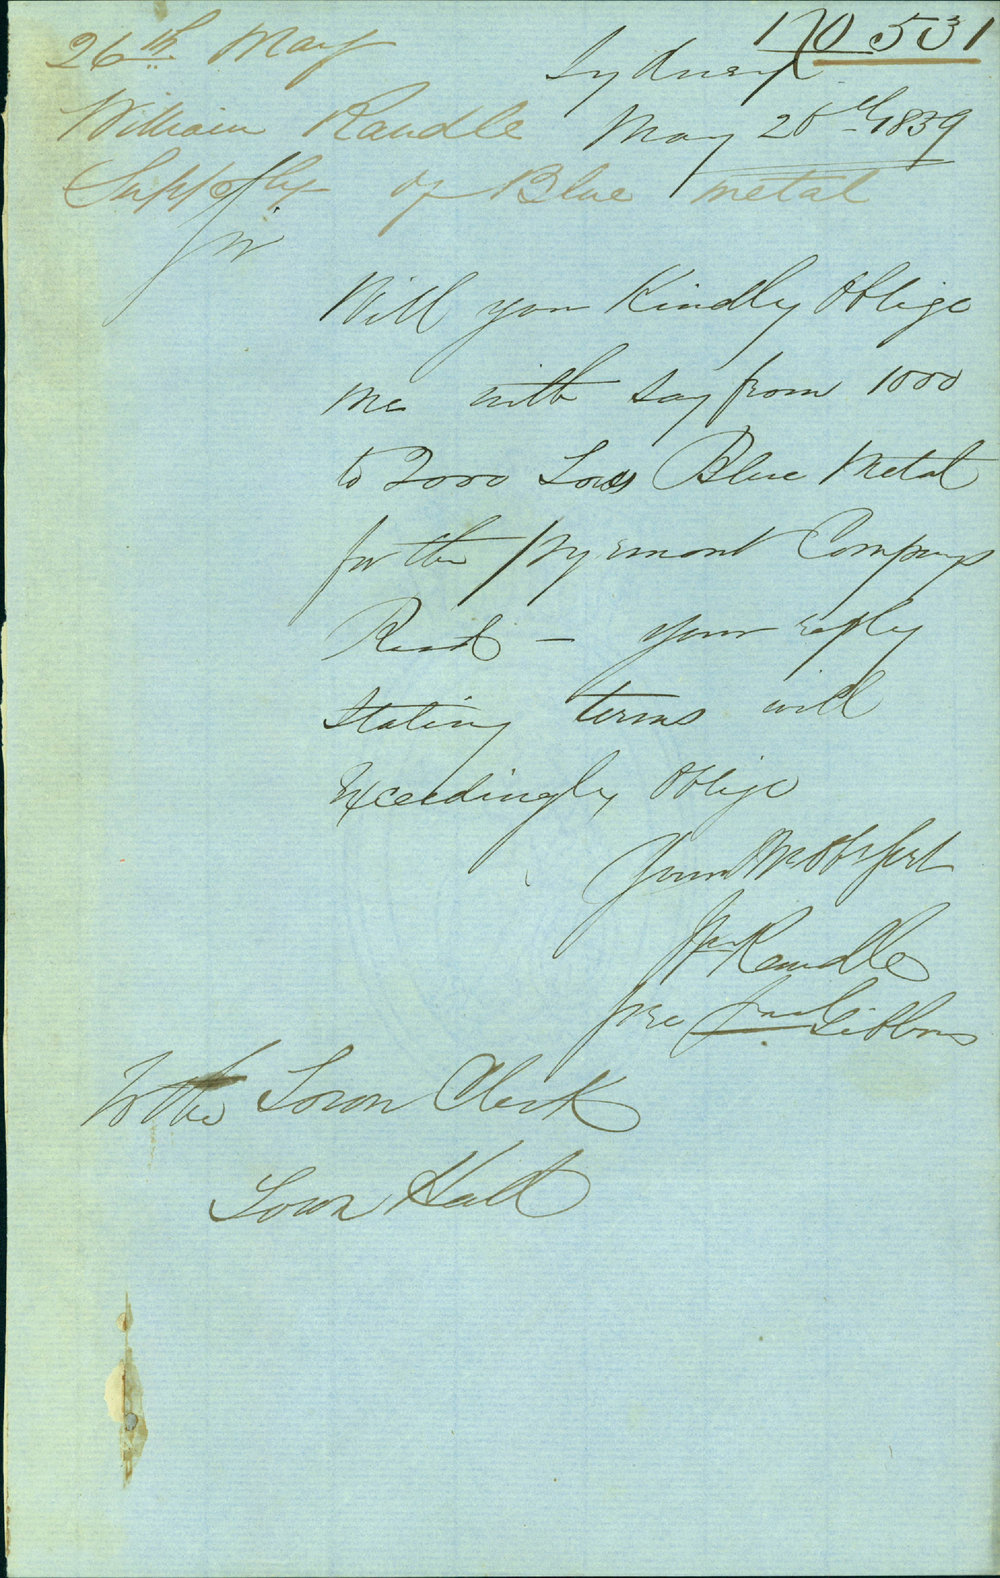 No 531
26th May
William Randle
Supply of Blue metal
Sydney
May 26th
Sir
Will you Kindly Oblige
me with say from 1000
to 2000 Tons Blue Metal
for the Pyrmont Companys
Road – your reply
stating terms will
Exceedingly Oblige
Wm Randle
Gibbons
To the Town Clerk
Town Hall